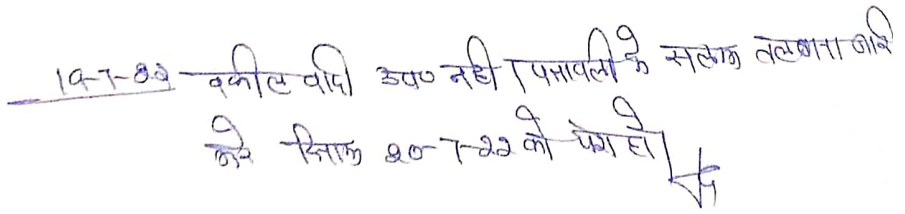 19-7-22 वकील वादी उप० नही। पत्रावली के सलग्न तलबाना जारी
करे दिनांक 20-7-22 को पेश हो।